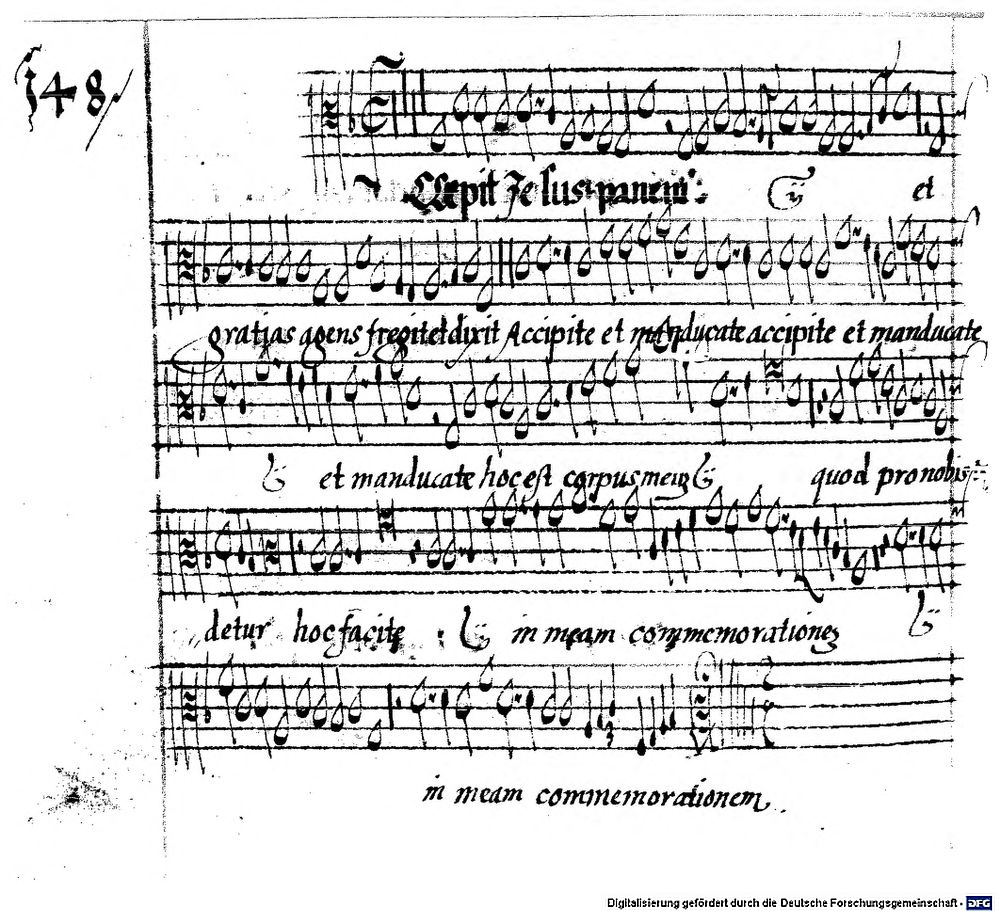 148
Accepit Jesus panem: ij et
gratias agens fregit et dixit Accipite et manducate accipite et manducate
ij et manducate hoc est corpus meu ij quod pro nobis
detur hoc facite : ij in meam commemoratione ij
in meam commemorationem
Digitalisierung gefördert durch die Deutsche Forschungsgemeinschaft - DFG